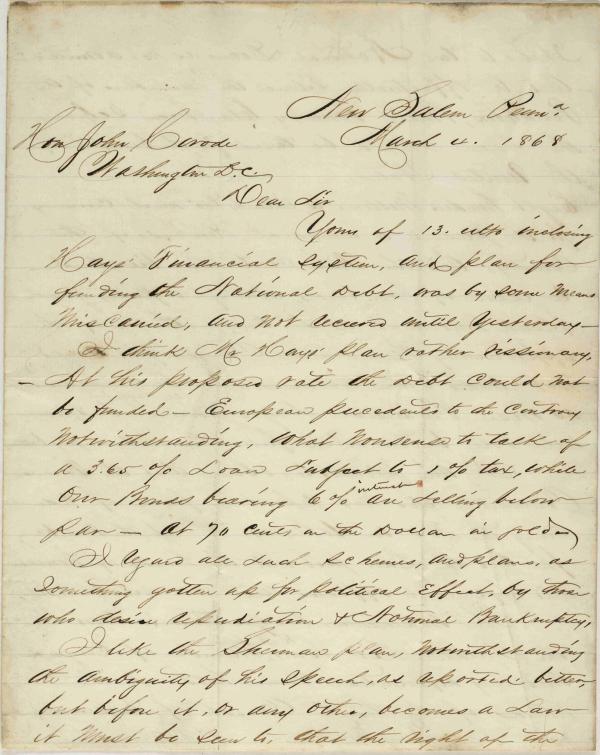 New Salem Penna
March 4. 1868
Hon John Covode
Washington D.C.
Dear Sir
Yours of 13. ulto inclosing
Hays' Financial System, and plan for
funding the National Debt, was by some means
Miscarried, and not received until yesterday —
I think Mr Hays' plan rather vissionary,
— At his proposed rate the Debt could not
be funded — European precedents to the contrary
Notwithstanding, what nonsense to talk of
a 3.65 % Loan subject to 1 % tax, while
interest
our Bonds bearing 6 % are selling below
par — at 70 cents on the Dollar in gold —
I regard all such schemes, and plans, as
Something gotten up for political Effect, by those
who desire repudiation & National Bankruptcy,
I like the Sherman plan, Notwithstanding
the ambiguity of his speech, as reported better,
but before it, or any other, becomes a Law
it must be seen to, that the right of the